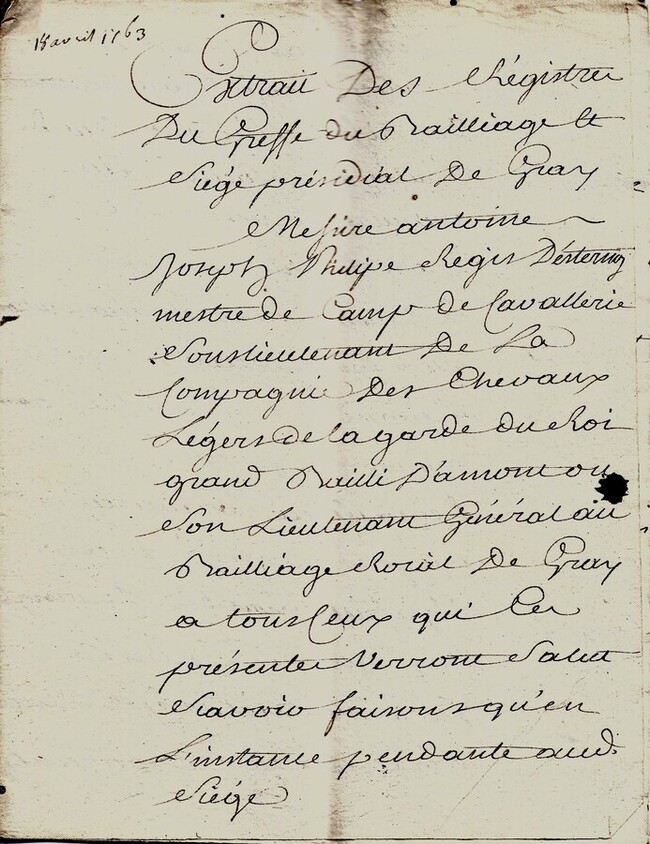 18 avril 1763
Extrait Des Régistres
Du Greffe du Bailliage et
Siége présidial De Gray
Messire antoine
Joseph Philipe Regis D'esterno
mestre de Camp de Cavallerie
Souslieutenant De La
Compagnie Des Chevaux
Légers de la garde du Roi
grand Bailli D'amont ou
Son Lieutenant Général au
Bailliage Roial De Gray
a tous Ceux qui Ces
présentes Verront Salut
Scavoir faisons qu'en
L'instance pendante aud.
Siége